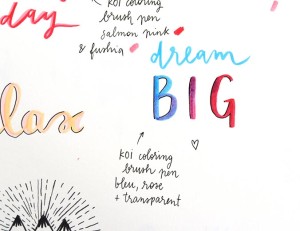 day
koi coloring
brush pen
salmon pink
& fushia
dream
BIG
lax
koi coloring
brush pen
bleu, rose
+ transparent